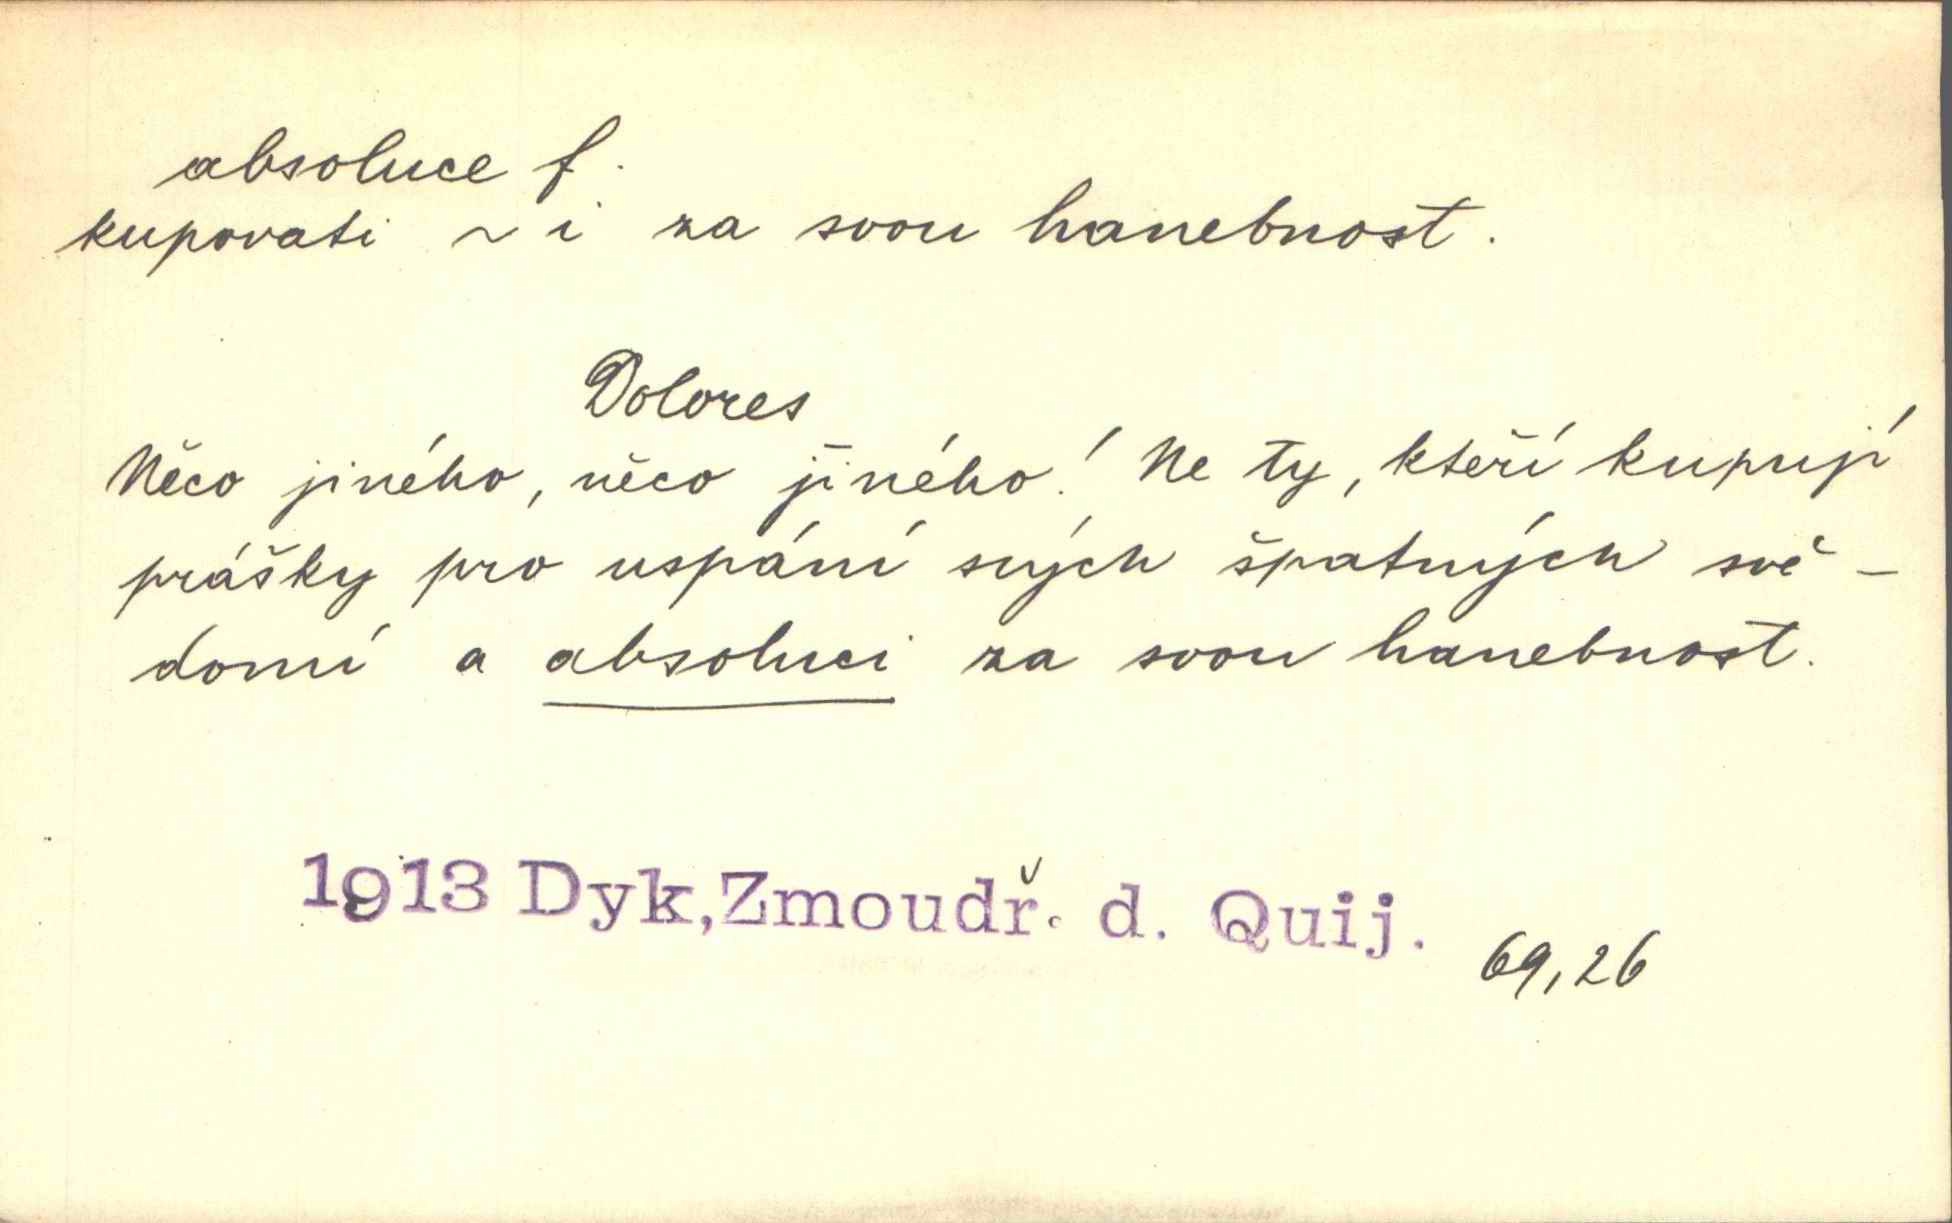 absoluce f.
kupovati ~i za svou hanebnost.
Dolores
Něco jiného, něco jiného! Ne ty, kteří kupují
prášky pro uspání svých špatných svě-
domí a absoluci za svou hanebnost.
1913 Dyk, Zmoudř. d. Quij.
69,26